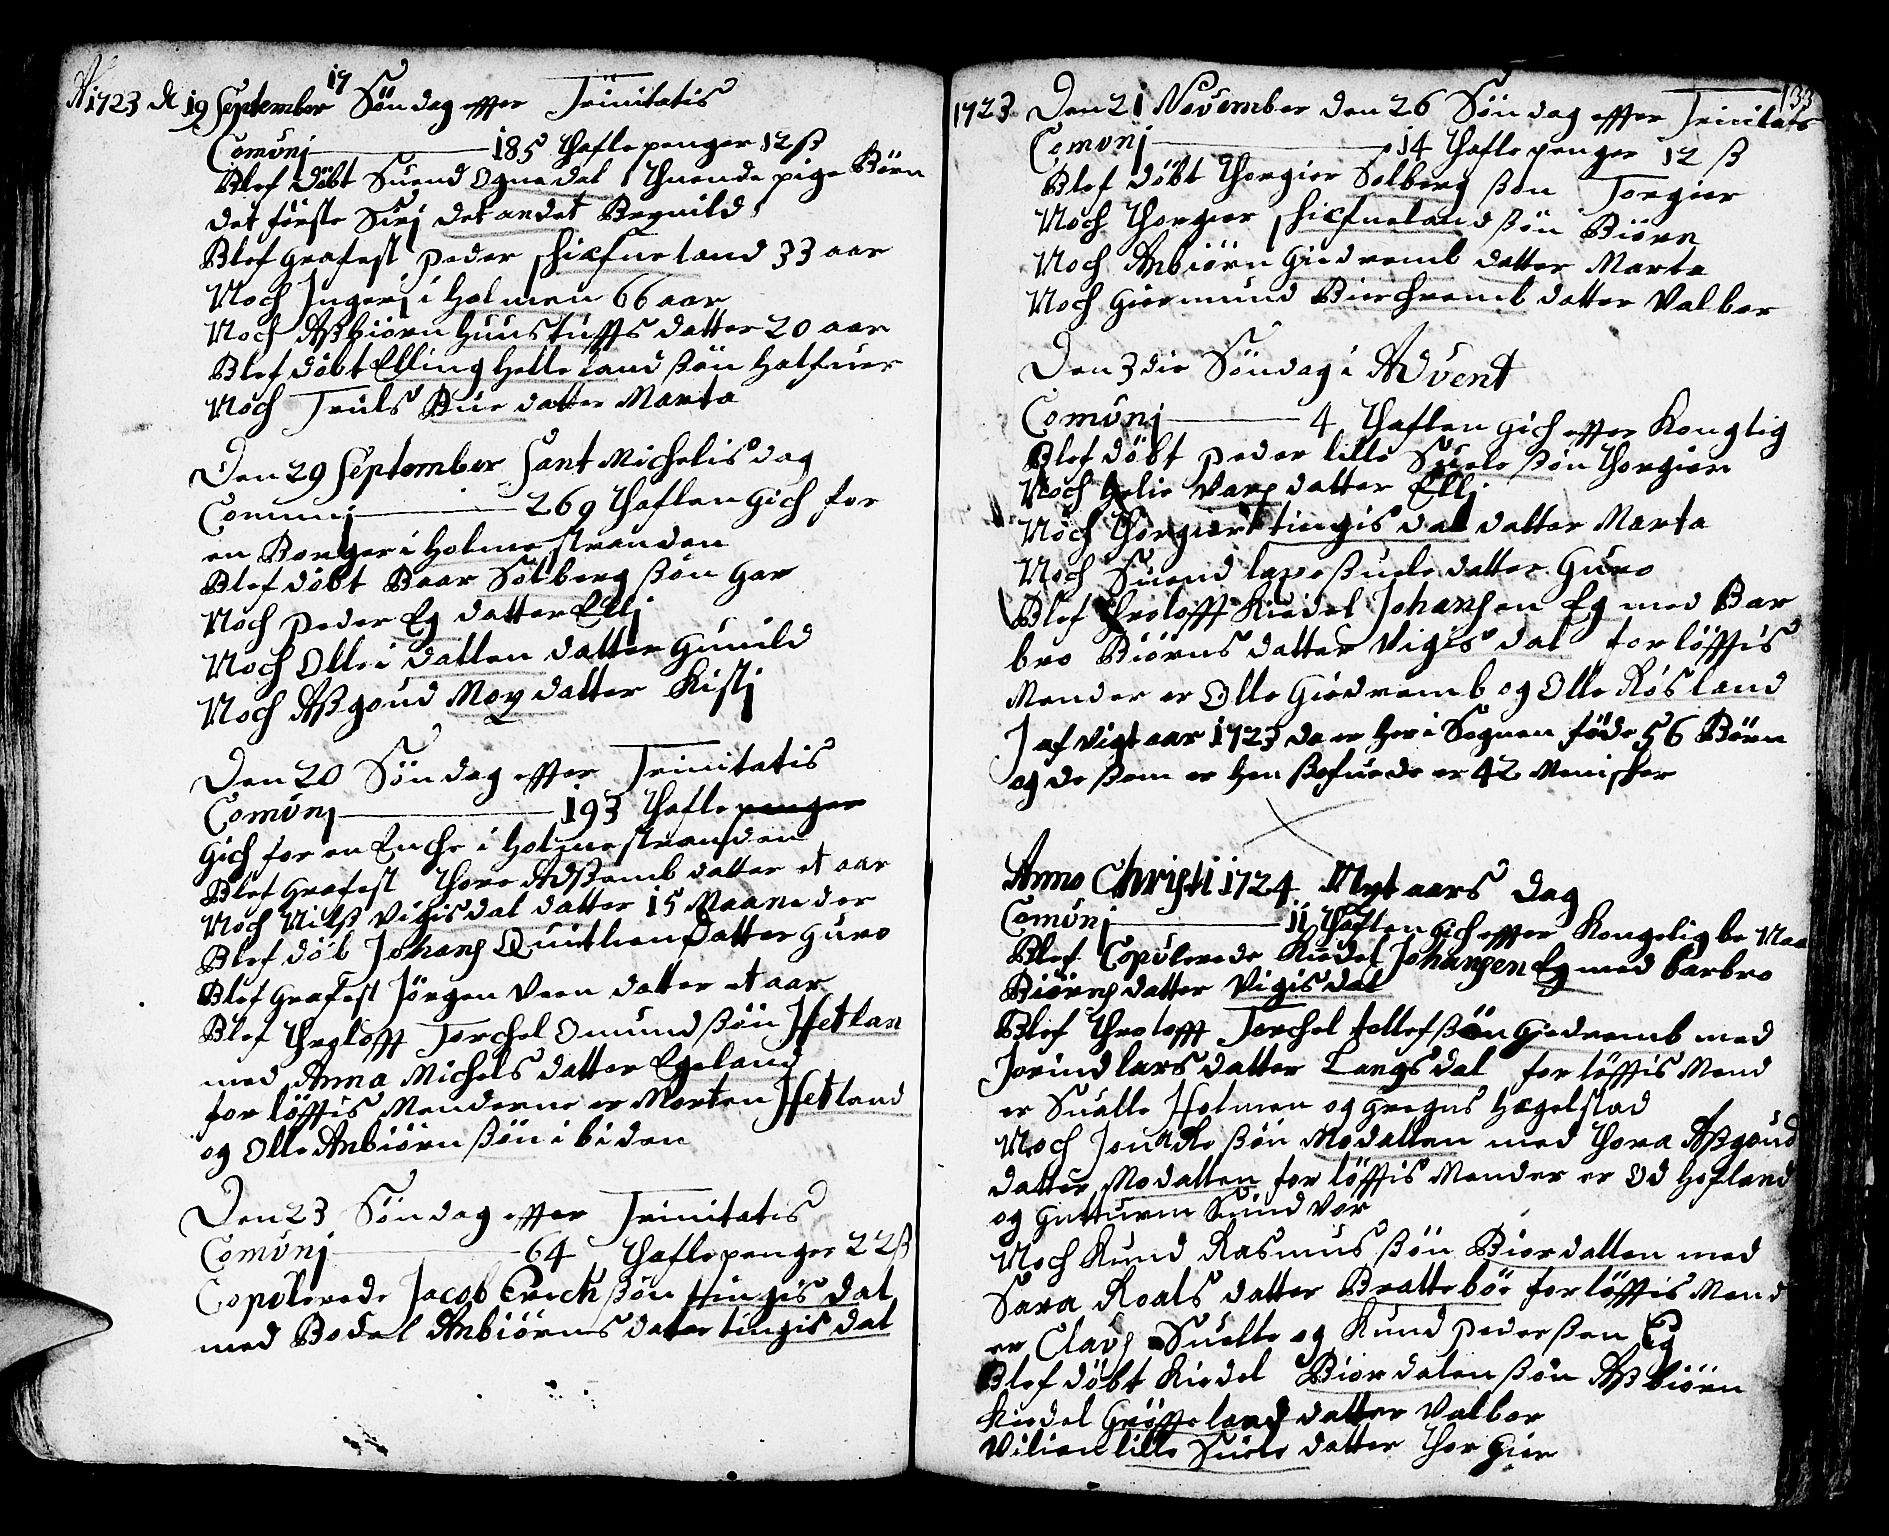 Ao 1723 d 19 September 17 Søndag effter Trinitatis
Comùnj 185 thafle penger 12 ß
Blef døbt Suend Ognedal thuende pige Børn
det første Sirj det andet Brynild
Blef Grafest Peder schiefueland 33 aar
Noch Ingerj i Holmen 66 aar
Noch Aßbiørn Huustuffts datter 20 aar
Blef døbt Elling Helleland ßøn Halfuer
Noch Truls Bue datter Marta
Den 29 September Sant Michelis dag
Comunj 269 thaflen Gich for
en Borger i Holmestranden
Blef døbt Baar Solberg ßøn Gar
Noch Peder Eg datter Ellj
Noch Olle i dallen datter Gunild
Noch Aßgoud Moy datter Kistj
Den 20 Søndag effter Trinitatis
Comùnj 193 thafle penger
Gich for en Enche i Holmestranden
Blef Grafest Thore Adßemb datter et aar
Noch Nilß Vigisdal datter 15 Maaneder
Blef døb Johans Quitlien datter Guro
Blef Grafest Jørgen Veen datter et aar
Blef throlofft Torchel Omundßøn Hetlan
med Anna Michels datter Egeland
forløfftis Menderne er Morten Hetland
og Olle Anbiørnßøn ibiden
Den 23 Søndag effter Trinitatis
Comùnj 64 thafle penger 22 ß
Copolerede Jacob Erichßøn tingisdal
med Bodel Anbiørns dater tingisdal
133
1723 Den 21 November den 26 Søndag effter Trinitats
Comùnj 14 thafle penger 12 ß
Blef døbt Thorgier Solberg ßøn Torgier
Noch Thorgier schiefueland ßøn Biørn
Noch Anbiørn Giedremb datter Marta
Noch Giermund Bierchremb datter Valbor
Den 3die Søndag i Advent
Comùnj 4 thaflen gich effter Konglig
Blef døbt Peder lille Suele ßøn Thorgier
Noch Helie Varp datter Ellj
Noch Thorgier tingisdal datter Marta
Noch Suend lape ßuele datter Guro
Blef throlofft Kiedel Johansen Eg med Bar
bro Biørns datter Vigisdal forløfftis
Mender er Olle Giedremb og Olle Røsland
I afvigt aar 1723 da er her i Sognen føde 56 Børn
og de ßom er hen ßofuede er 42 Menischer
Anno Christi 1724 Nyt aars dag
Comùnj 11 thaflen gich effter Kongelig be Naa
Blef Copùlerede Kiedel Johansen Eg med barbro
Biørns datter Vigisdal
Blef throlofft Torchel tollefßøn Giedremb med
Jorind lars datter Langsdal forløfftis Mend
er Sualle Holmen og Gregus Hægelstad
Noch Jon Aleßøn Modallen med Thora Aßgoud
datter Modallen forløfftis Mender er Od Hofland
og Gutturm Sundvor
Noch Kund Rasmusßøn Biordallen med
Sara Roals datter Brattebø forløfftis Mend
er Claus Suelle og Kund Pederßen Eg
Blef døbt Kiedel Biordalen ßøn Aßbiørn
Kiedel Grøffeland datter Valbor
Vilien lille Suele datter Thorgier